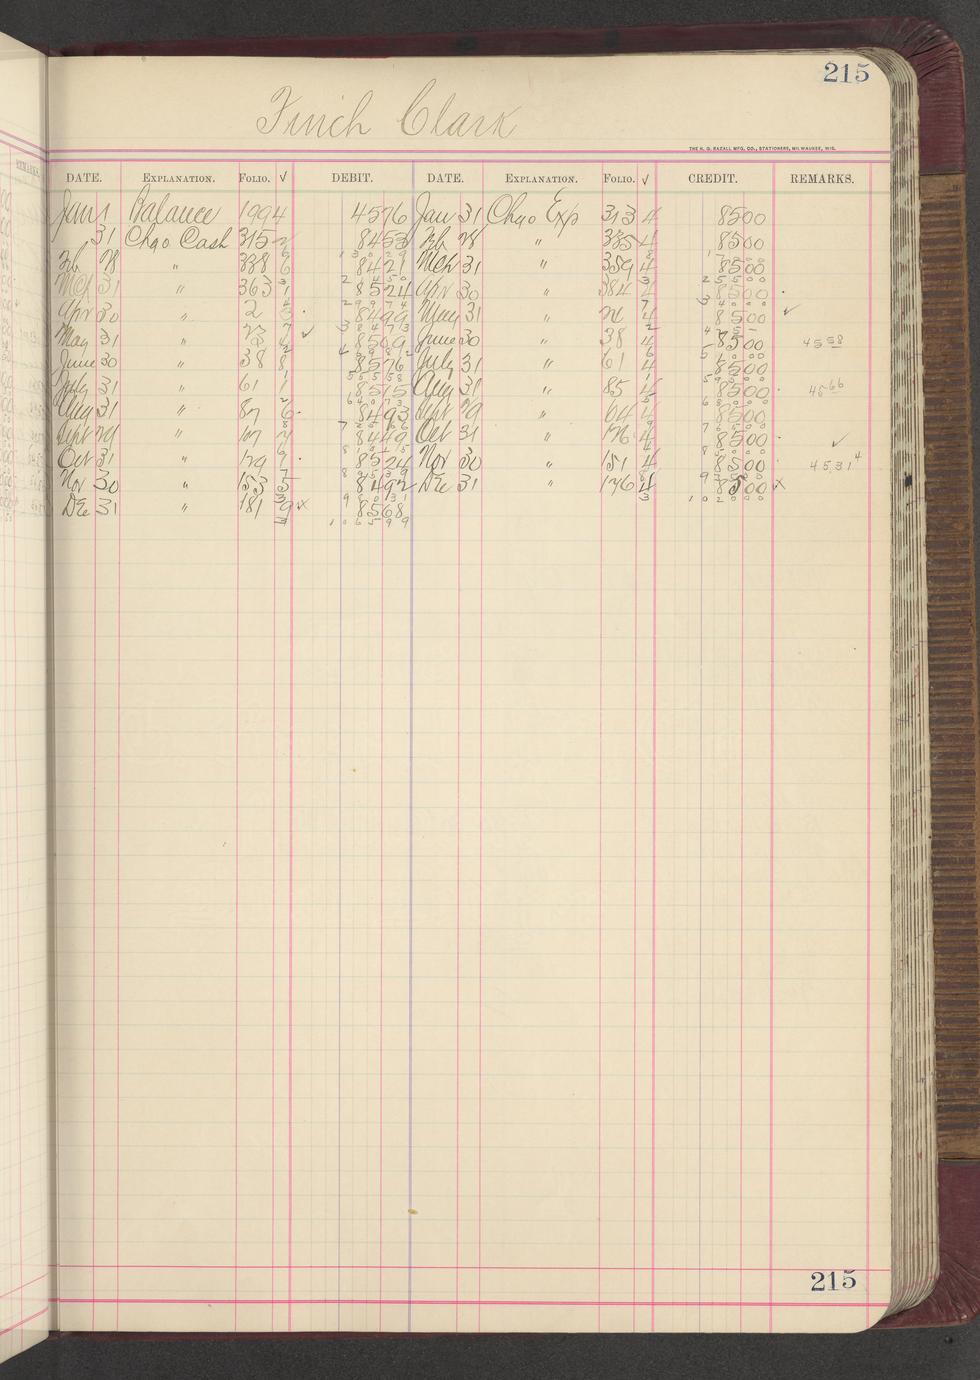 215
Finch Clark
THE H. G. RAZALL MFG. CO., STATIONERS, MILWAUKEE, WIS.
DATE. EXPLANATION. FOLIO. √ DEBIT. DATE. EXPLANATION. FOLIO. √ CREDIT. REMARKS.
Jan 1 Balance 199 4 4576 Jan 31 Chgo Exp 313 4 8500
31 Chgo Cash 315 8453 Feb 28 " 335 4 8500
Feb 28 " 338 8421 Mch 31 " 359 4 8500
Mch 31 " 363 8524 Apr 30 " 384 4 8500
Apr 30 " 2 8499 May 31 " 4 8500 ✓
May 31 " 8509 June 30 " 38 4 8500 45 58
June 30 " 38 8576 July 31 " 61 4 8500
July 31 " 61 8575 Aug 31 " 85 4 8500 45 66
Aug 31 " 87 6 8493 Sept 29 " 4 8500
Sept 29 " 107 8449 Oct 31 " 126 4 8500 ✓
Oct 31 " 129 8524 Nov 30 " 151 4 8500 45 31
Nov 30 " 153 5 8492 Dec 31 " 176 4 8500 x
Dec 31 " 181 9 x 8568 1 0 2 0 0 0
1 0 6 5 9 9
215